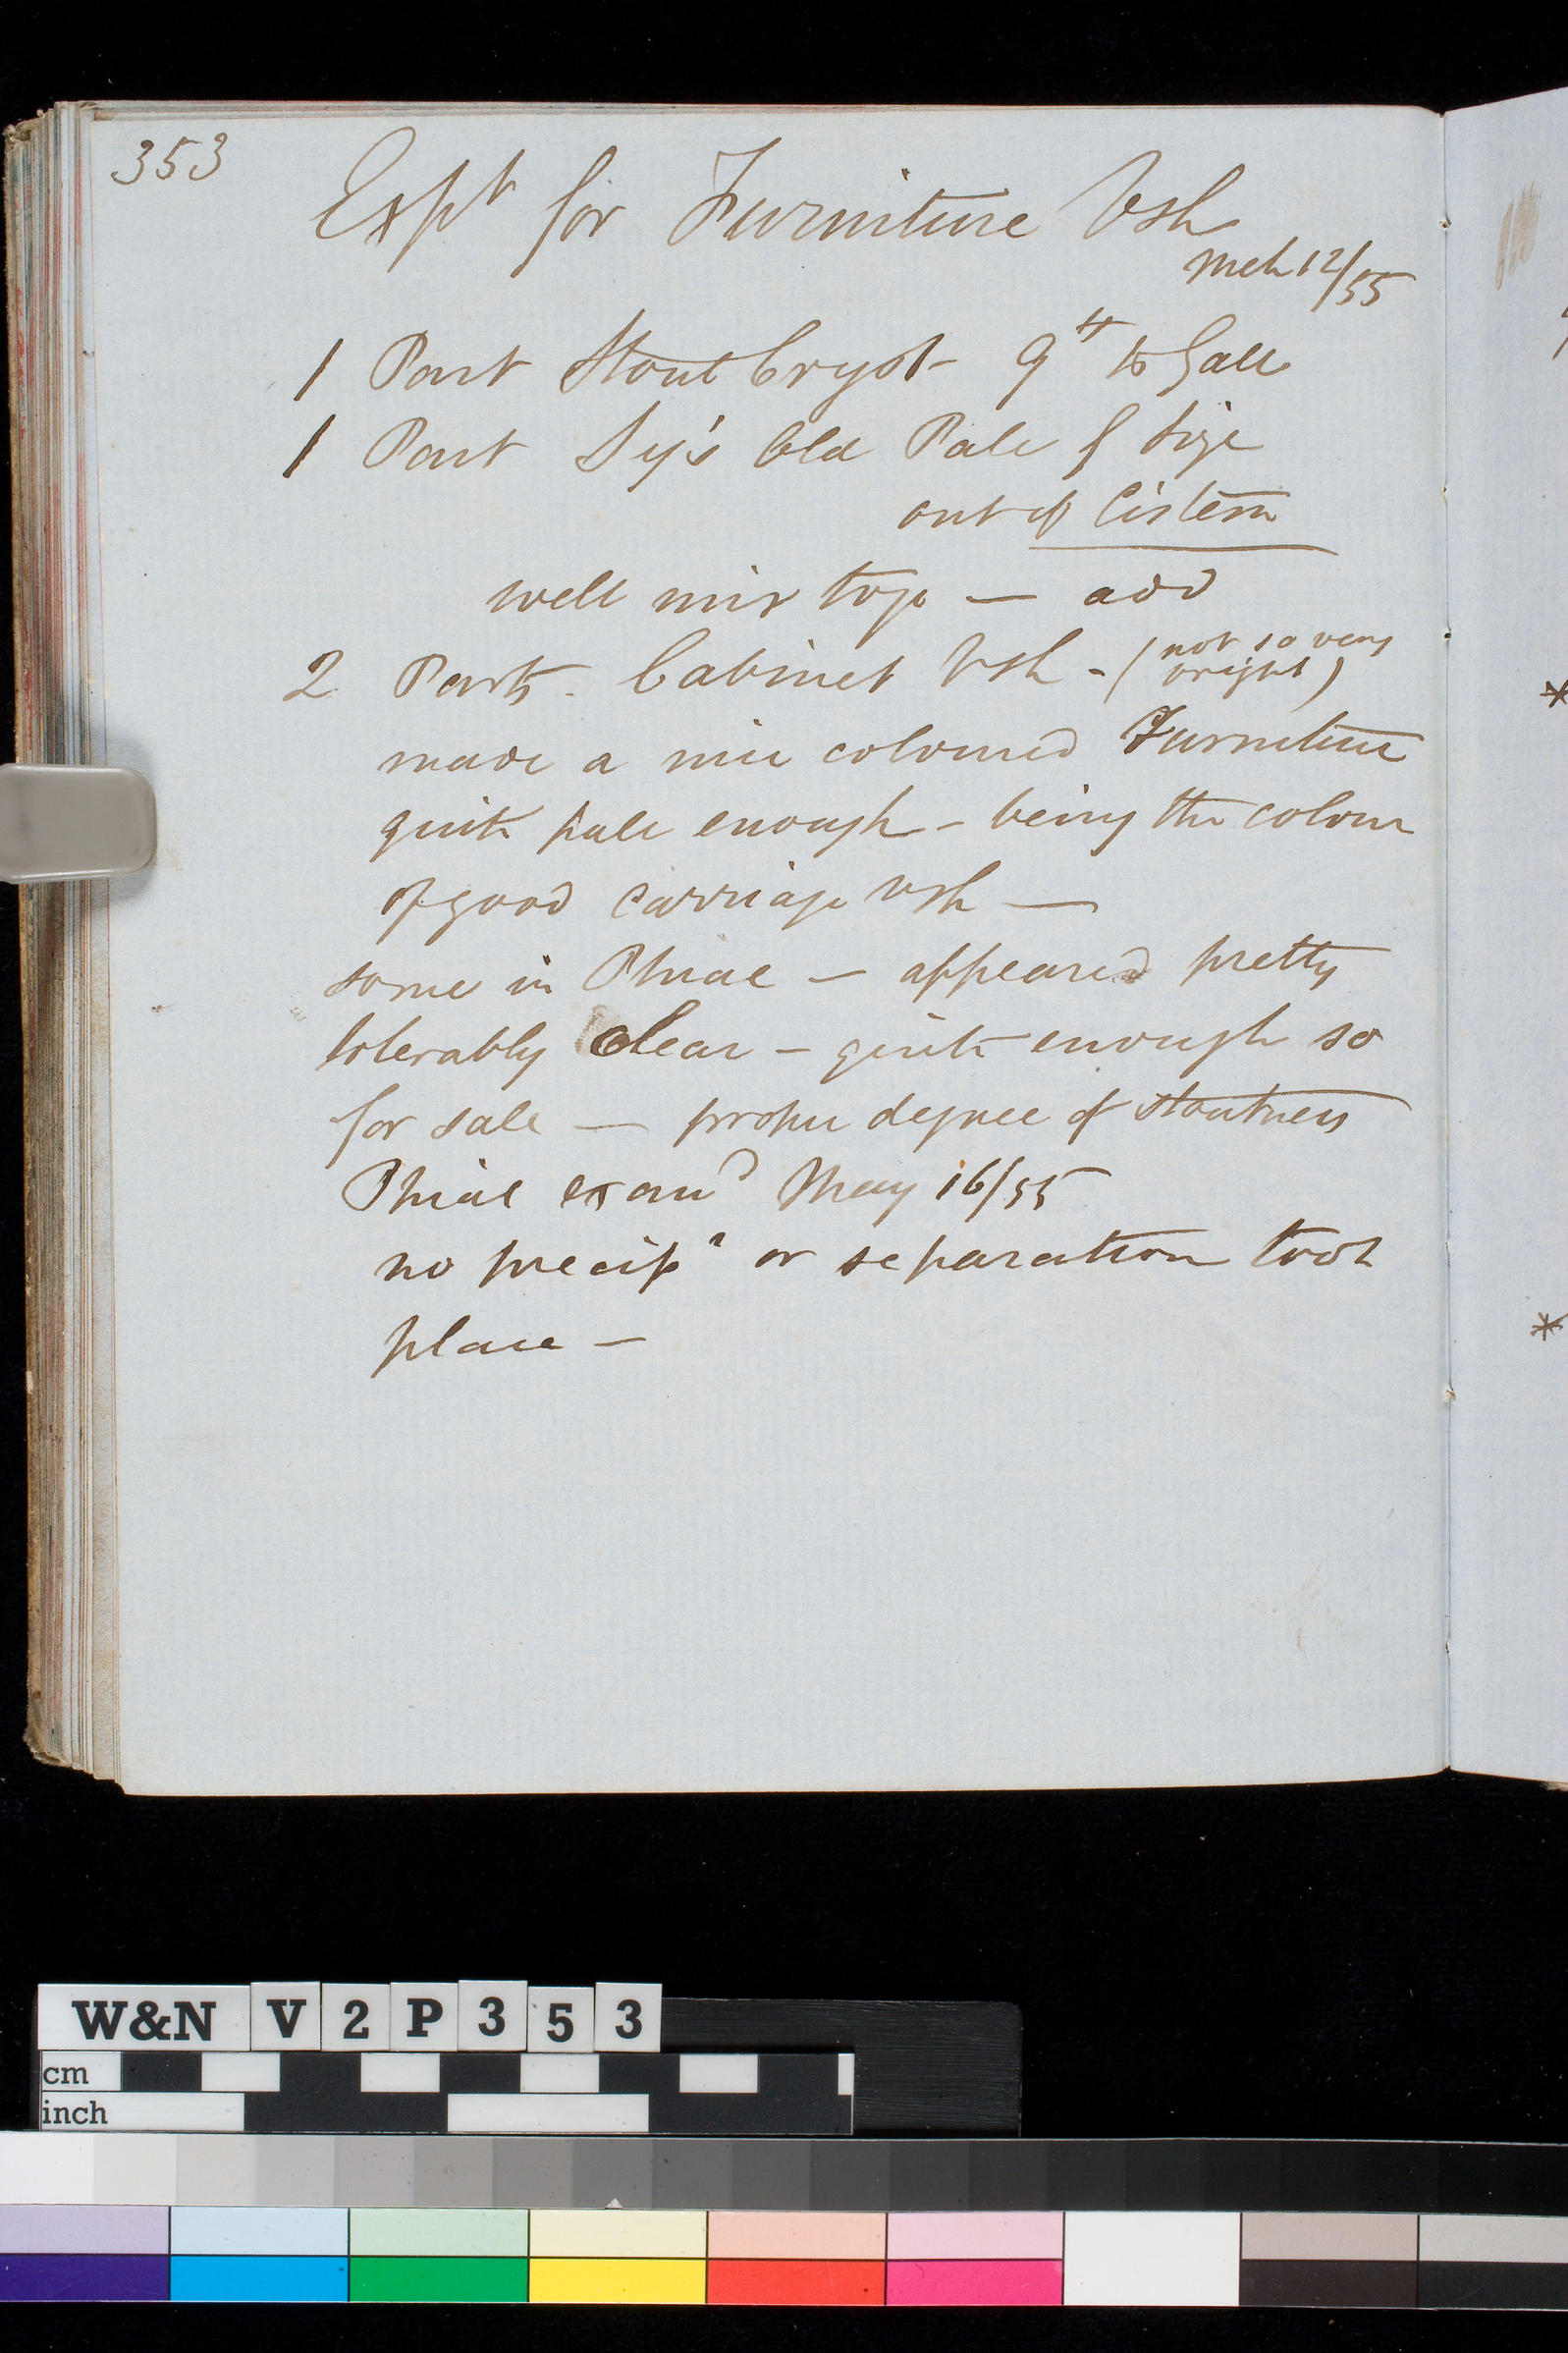 353
Expt for Furniture Vsh
Mch 12/55
1 Part Stout Cryst - 9 lb to Gall
1 Part Old Pale Size
out of Cistern
well mix togr — add
2 Parts - Cabinet Vsh - (not so very
bright)
made a nice coloured Furniture
quite pale enough - being the colour
of good carriage Vsh —
some in Phial — appeared pretty
tolerably clear - quite enough so
for sale — proper degree of stoutness
Phial examd May 16/55
no precipn or separation took
place —
W&N V2P353
cm
inch